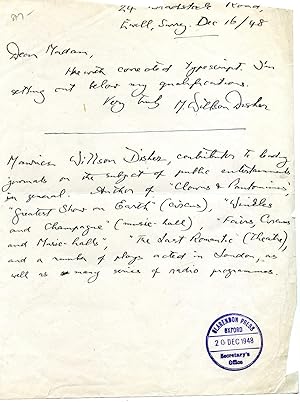 24 Woodstock Road,
Ewell, Surrey. Dec 16/48
Dear Madam,
Herewith corrected typescript. I'm
setting out below my qualifications.
Very truly M. Willson Disher
Maurice Willson Disher, contributor to leading
journals on the subject of public entertainments
in general. Author of "Clowns & Pantomimes"
"Greatest Show on Earth" (circus), "Winkles
and Champagne" (music-hall) "Fairs Circuses
and Music-halls", "The Last Romantic (Theatre),
and a number of plays acted in London, as
well as many series of radio programmes.
CLARENDON PRESS
OXFORD
20 DEC 1948
Secretary's
Office